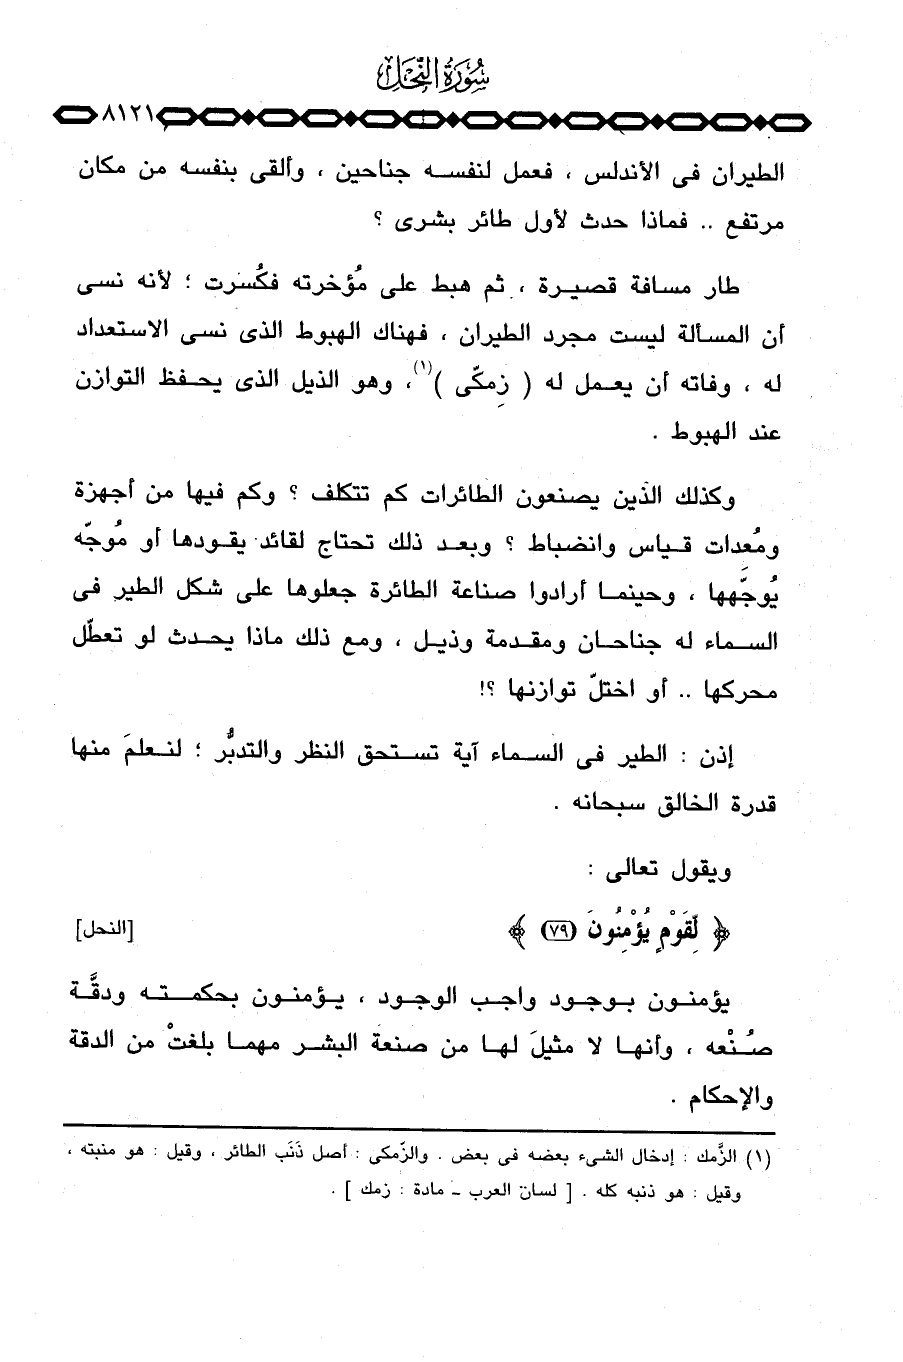 سُورَةُ النَّحْلِ
٨١٢١
الطيران فى الأندلس ، فعمل لنفسه جناحين ، وألقى بنفسه من مكان
مرتفع .. فماذا حدث لأول طائر بشرى ؟
طار مسافة قصيرة ، ثم هبط على مُؤخرته فكُسرت ؛ لأنه نسى
أن المسألة ليست مجرد الطيران ، فهناك الهبوط الذى نسى الاستعداد
له ، وفاته أن يعمل له ( زِمكّى )(١)، وهو الذيل الذى يحفظ التوازن
عند الهبوط .
وكذلك الذين يصنعون الطائرات كم تتكلف ؟ وكم فيها من أجهزة
ومُعدات قياس وانضباط ؟ وبعد ذلك تحتاج لقائد يقودها أو مُوجِّه
يُوجِّهها ، وحينما أرادوا صناعة الطائرة جعلوها على شكل الطير فى
السماء له جناحان ومقدمة وذيل ، ومع ذلك ماذا يحدث لو تعطّل
محركها .. أو اختلّ توازنها ؟!
إذن : الطير فى السماء آية تستحق النظر والتدبُّر ؛ لنعلمَ منها
قدرة الخالق سبحانه .
ويقول تعالى :
﴿ لِّقَوْمٍ يُؤْمِنُونَ (٧٩) ﴾ [النحل]
يؤمنون بوجود واجب الوجود ، يؤمنون بحكمته ودقَّة
صُنْعه ، وأنها لا مثيلَ لها من صنعة البشر مهما بلغتْ من الدقة
والإحكام .
(١) الزَّمك : إدخال الشىء بعضه فى بعض . والزّمكى : أصل ذَنَب الطائر ، وقيل : هو منبته ،
وقيل : هو ذنبه كله . [ لسان العرب - مادة : زمك ] .